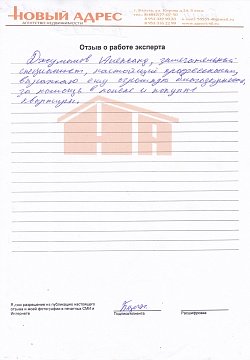 НОВЫЙ АДРЕС
АГЕНТСТВО НЕДВИЖИМОСТИ
Отзыв о работе эксперта
замечательный
специалист, настоящий профессионал,
выражаю ему огромную благодарность
за помощь в поиске и покупке
квартиры.
Даю разрешение на публикацию настоящего
отзыва и моей фотографии в печатных СМИ и
Интернете
Подпись клиента
Расшифровка